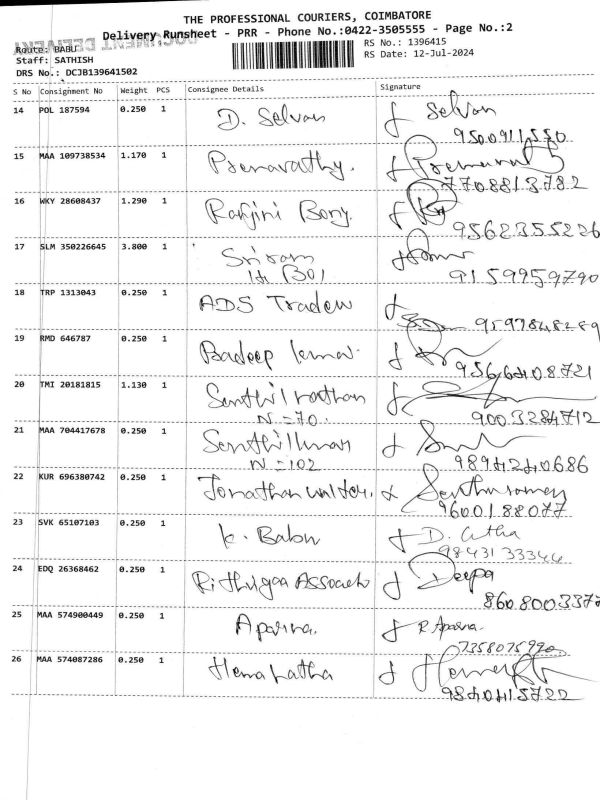 THE PROFESSIONAL COURIERS, COIMBATORE
Delivery Runsheet - PRR - Phone No.:0422-3505555 - Page No.:2
Route: BABU
RS No.: 1396415
Staff: SATHISH
RS Date: 12-Jul-2024
DRS No.: DCJB139641502
S No Consignment No Weight PCS Consignee Details Signature
14 POL 187594 0.250 1 D. Selvan Selvan
9500911550
15 MAA 109738534 1.170 1 Premavathy.
7708813782
16 WKY 28608437 1.290 1 Ranjini Bony.
9562355226
17 SLM 350226645 3.800 1 Sriram
B01
9159959790
18 TRP 1313043 0.250 1 ADS Traders
9597848289
19 RMD 646787 0.250 1
9566408721
20 TMI 20181815 1.130 1 Senthil nathan
N = 70.
9003284712
21 MAA 704417678 0.250 1 Senthilkumar
N = 102
9894240686
22 KUR 696380742 0.250 1 Jonathan
9600188077
23 SVK 65107103 0.250 1 K. Babu
98431 33344
24 EDQ 26368462 0.250 1 Rithigaa Associates Deepa
8608003377
25 MAA 574900449 0.250 1 Aparna. R. Aparna.
7358075990
26 MAA 574087286 0.250 1 Hemalatha
9840415722